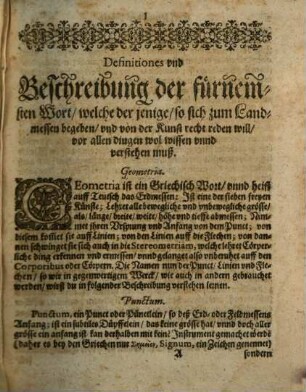 Definitiones vnd
Beschreibung der fürnem-
sten Wort/ welche der jenige/ so sich zum Land-
messen begeben/ vnd von der Kunst recht reden will/
vor allen dingen wol wissen vnnd
verstehen muß.
Geometria.
GEometria ist ein Griechisch Wort/ vnnd heist
auff Teutsch das Erdmessen: Ist eine der sieben freyen
Künste; Lehret alle bewegliche vnd vnbewegliche grösse/
als/ länge/ breite/ weite/ höhe vnd tieffe abmessen; Nim-
met ihren Vrsprung vnd Anfang von dem Punct; von
diesem kompt sie auff Linien; von den Linien auff die Flechen; von dan-
nen schwinget sie sich auch in die Stereometriam, welche lehret Cörper-
liche ding erkennen vnd ermessen/ vnnd gelanget also vnberuhet auff den
Corporibus oder Cörpern. Die Namen nun der Punct/ Linien vnd Fle-
chen/ so wir in gegenwertigem Werck/ wie auch in andern gebrauchen
werden/ wirst du in folgender Beschreibung verstehen lernen.
Punctum.
Punctum, ein Punct oder Pünctlein/ so deß Erd- oder Feldmessens
Anfang; ist ein subtiles Düpfflein/ das keine grösse hat/ vnnd doch aller
grösse ein anfang ist/ kan derhalben mit kein Instrument gemachet werdẽ
(daher es bey den Griechen nur Σημεῖον, Signum, ein Zeichen genennet)
A sondern